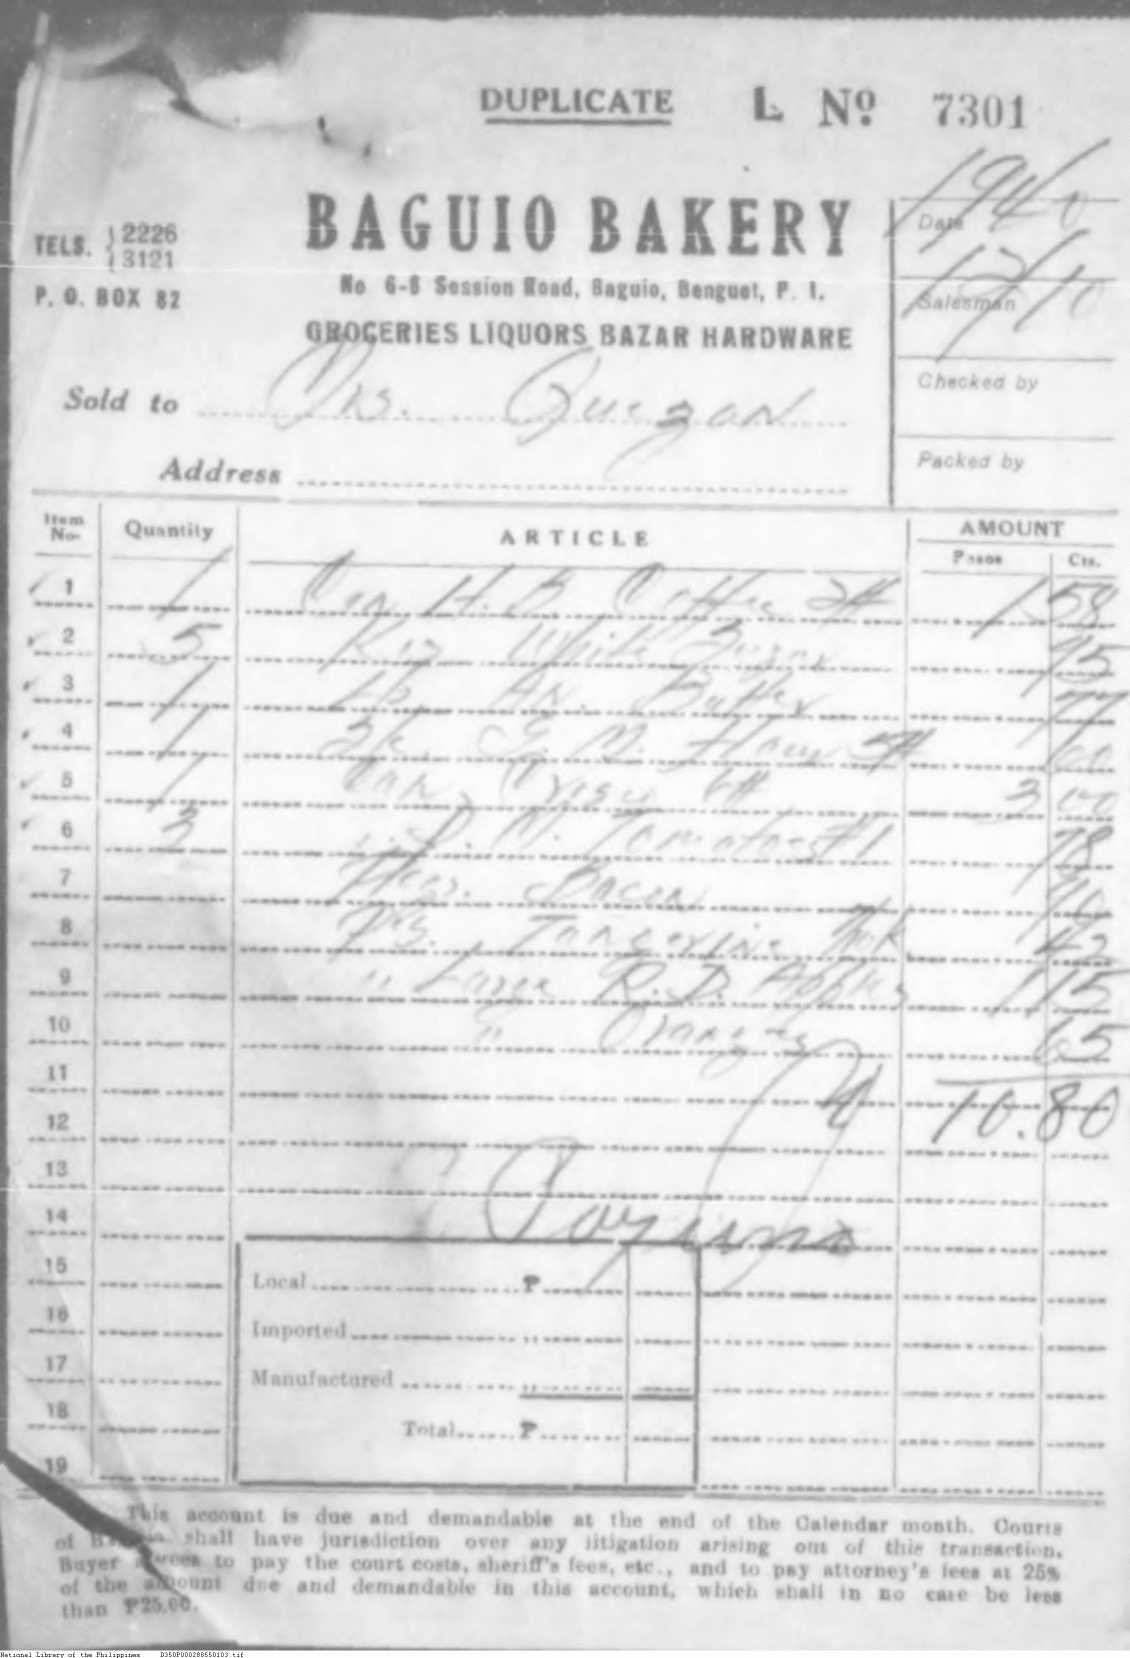 DUPLICATE L Nº 7301
1940
TELS. 2226
3121
P. O. BOX 82
BAGUIO BAKERY
No 6-8 Session Road, Baguio, Benguet, P. I.
GROCERIES LIQUORS BAZAR HARDWARE
Date
12/10
Salesman
Checked by
Packed by
Sold to Mrs. Quezon
Address
Item No. Quantity ARTICLE AMOUNT
Pesos Cts.
1 1 Can H. B. Coffee 2# 1 58
2 5 Kis White Sugar 95
3 1 Lb. An. Butter 77
4 1 Sk. G. M. Flour 5# 60
5 1 Can Crisco 6# 3 00
6 3 " D. M. Tomatoes #1 78
7 Hgs. Bacon 90
8 Pcs. Tangerine 42
9 " Large R. D. Apples 1 15
10 " Oranges 65
11 10.80
12
13
14
15 Local P
16 Imported "
17 Manufactured "
18 Total P
19
This account is due and demandable at the end of the Calendar month. Courts
of Baguio shall have jurisdiction over any litigation arising out of this transaction.
Buyer agrees to pay the court costs, sheriff's fees, etc., and to pay attorney's fees at 25%
of the amount due and demandable in this account, which shall in no case be less
than ₱25.00.
National Library of the Philippines D350P000288550103.tif